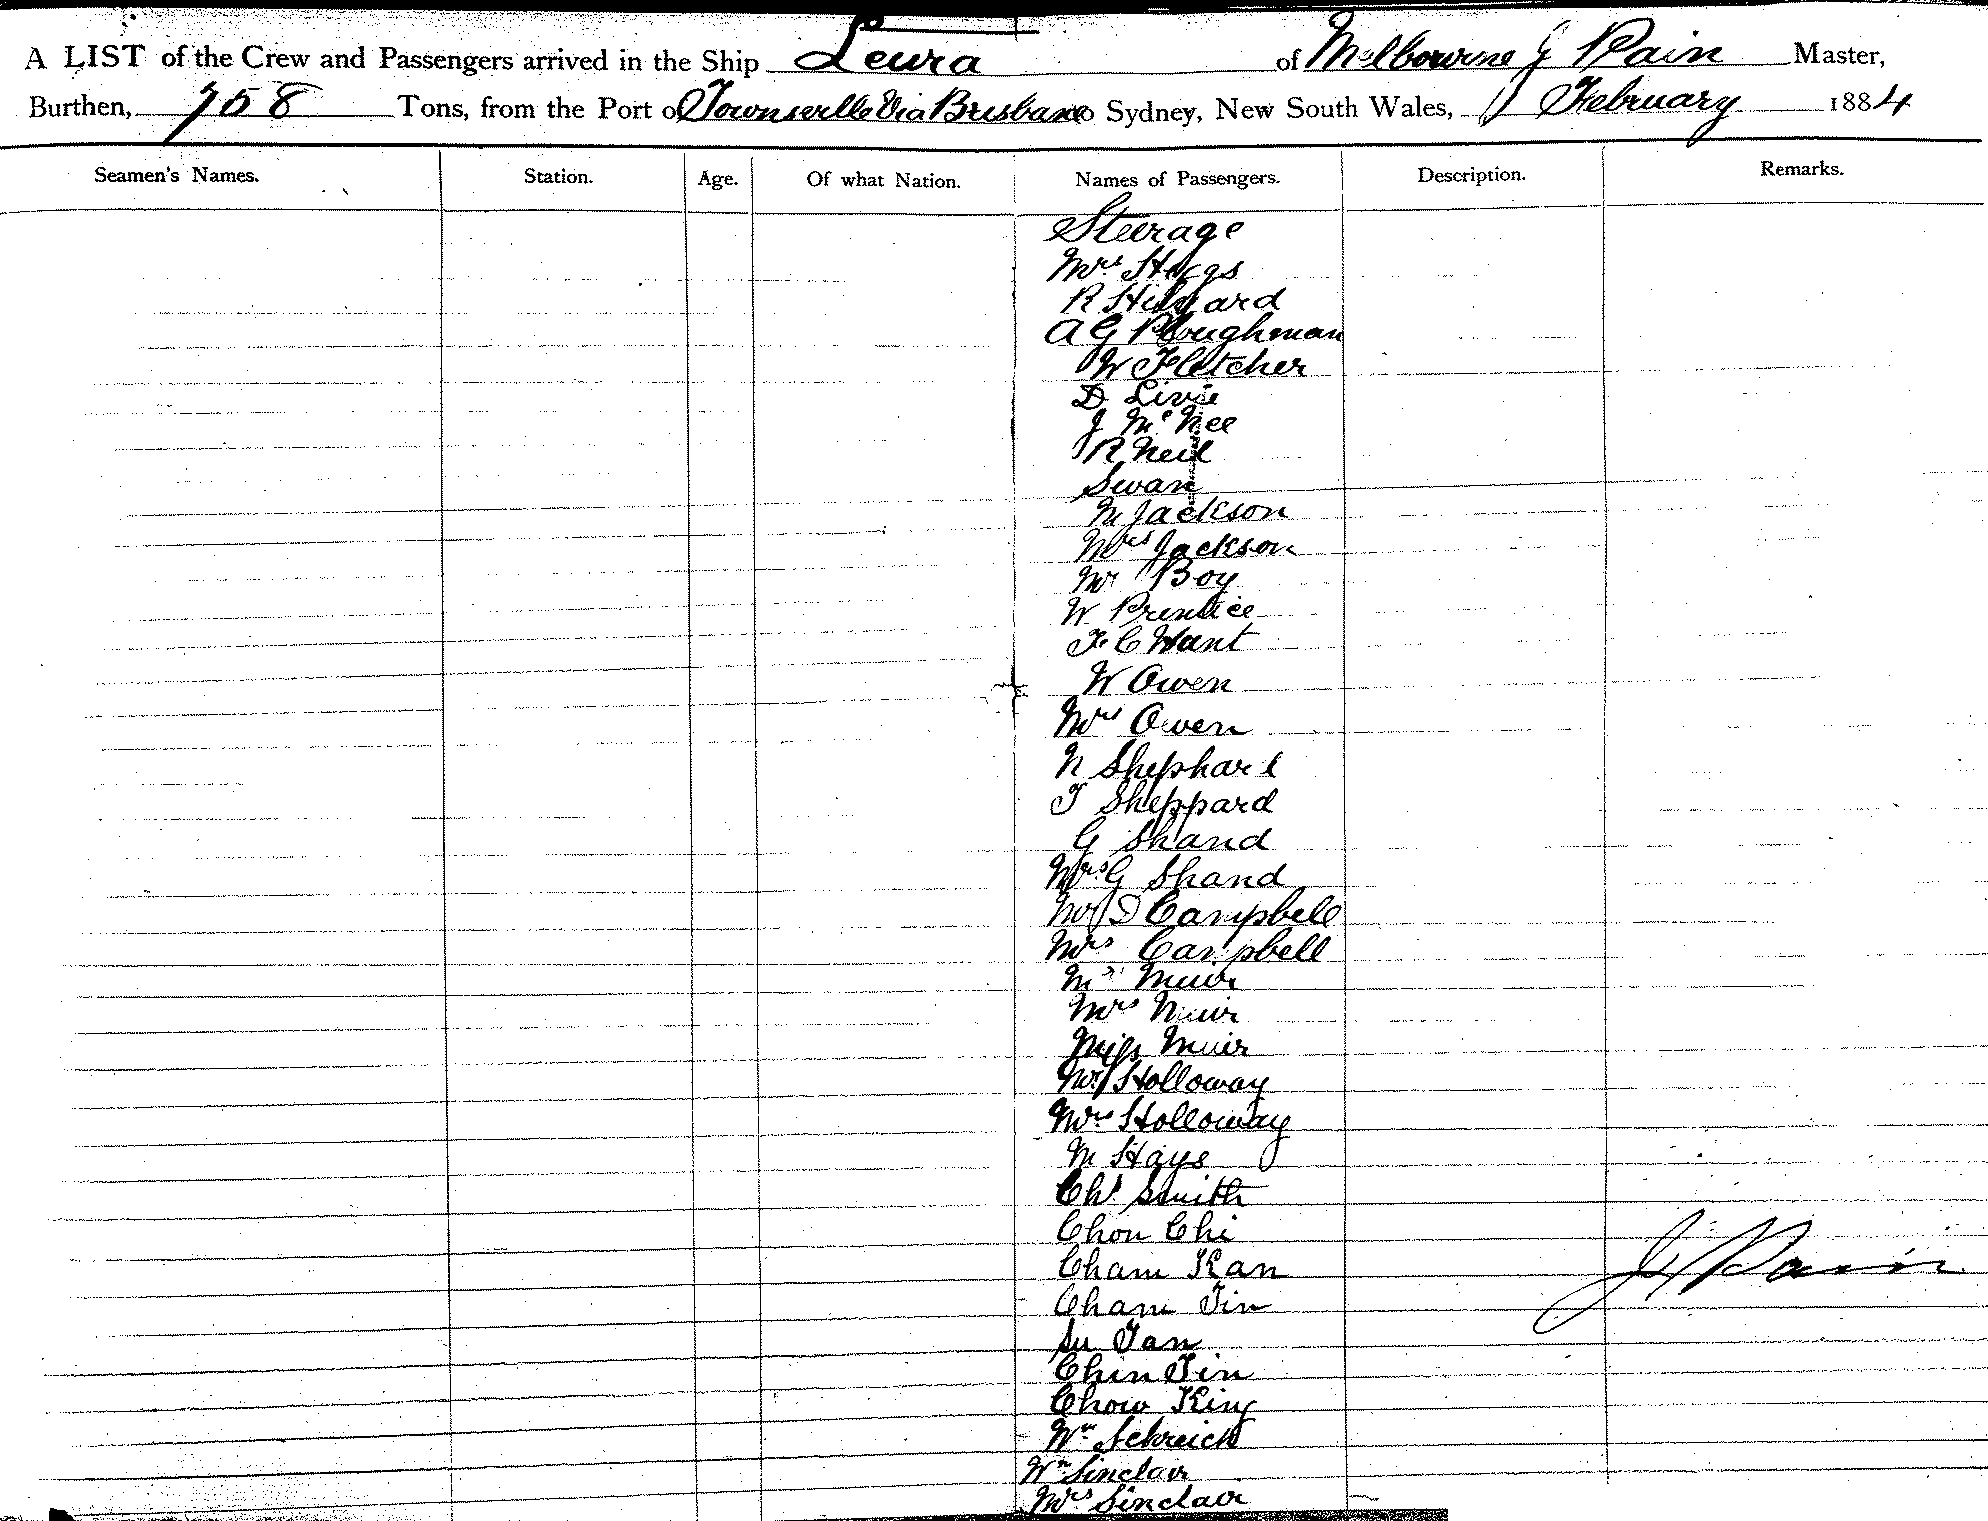 A LIST of the Crew and Passengers arrived in the Ship Leura of Melbourne J Pain Master,
Burthen, 758 Tons, from the Port of Townsville Via Brisbane to Sydney, New South Wales, 1 February 1884
Seamen's Names. Station. Age. Of what Nation. Names of Passengers. Description. Remarks.
Steerage
Mrs
R
A G Ploughman
W Fletcher
D Livie
J McNee
R Neil
Swan
M Jackson
Mrs Jackson
Mr Boy
W Prentice
F C Want
W Owen
Mrs Owen
N Shephard
T Sheppard
G Shand
Mrs G Shand
Mr D Campbell
Mrs Campbell
Mr Muir
Mrs Muir
Miss Muir
Mr Holloway
Mrs Holloway
M Hays
Chs Smith
Chou Chi
Cham Kan
J Pain
Cham Tin
Su Tan
Chin Tin
Chow King
Wm Schreick
Wm Sinclair
Mrs Sinclair